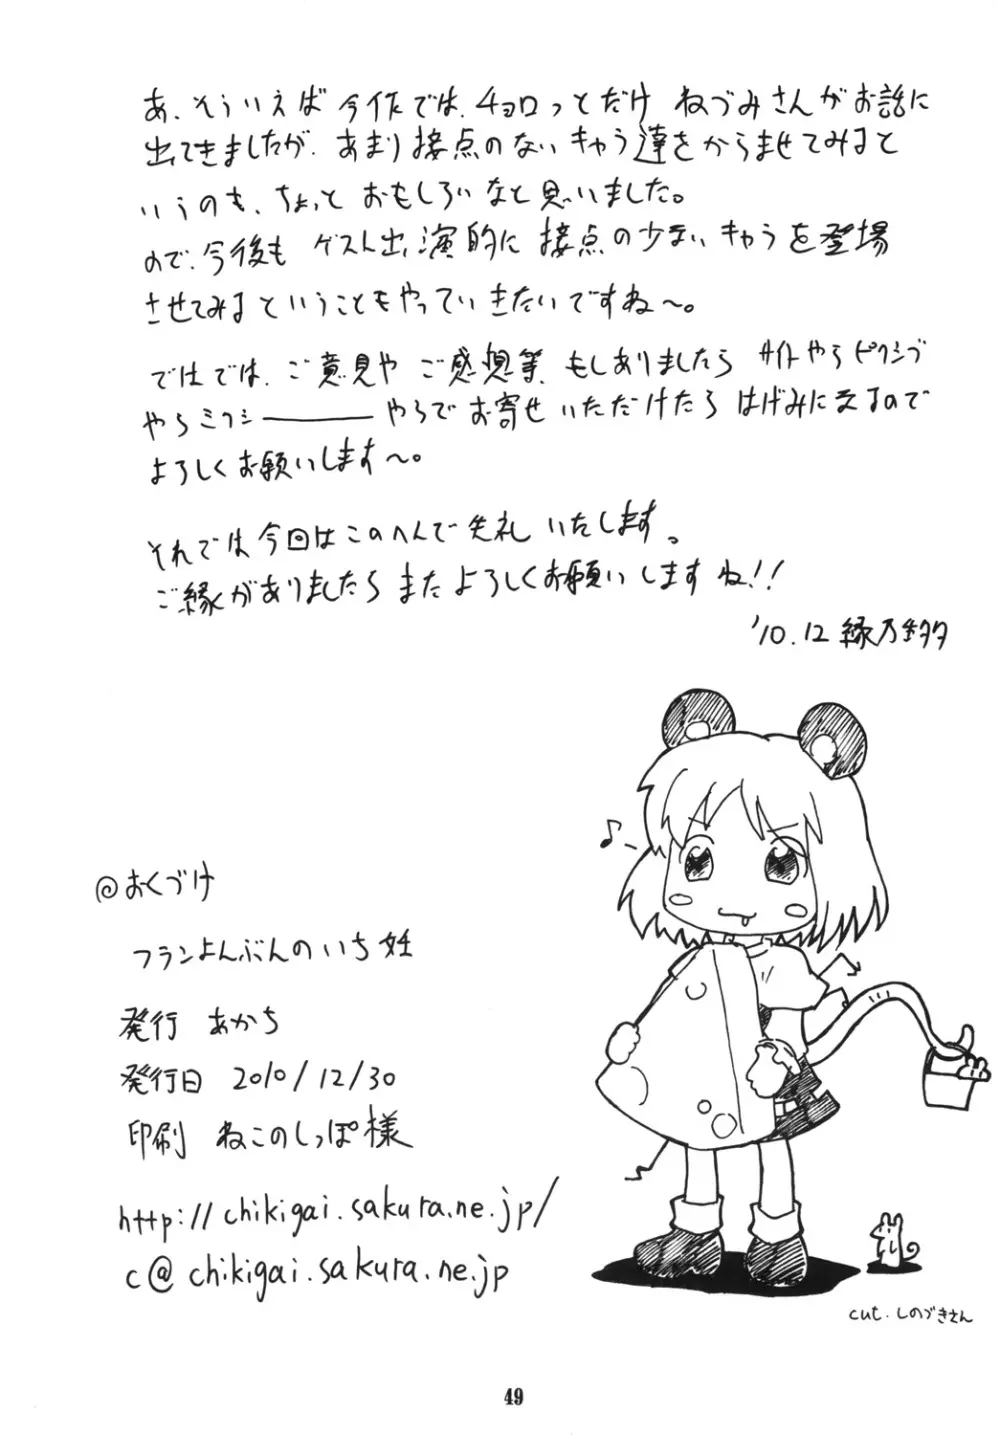 あ、そういえば今作では、チョロっとだけ ねづみさんがお話に
出てきましたが、あまり接点のないキャラ達をからませてみると
いうのも、ちょっと おもしろいなと思いました。
ので、今後も ゲスト出演的に 接点の少ないキャラを登場
させてみるということもやっていきたいですね〜。
ではでは、ご意見や ご感想等、もしありましたら サイトやらピクシブ
やらミクシーーーーやらでお寄せいただけたら はげみになるので
よろしくお願いします〜。
それでは今回はこのへんで失礼 いたします。
ご縁がありましたらまたよろしくお願いしますね!!
'10.12 縁乃
♪
@おくづけ
フランよんぶんのいち妊
発行 あかち
発行日 2010/12/30
印刷 ねこのしっぽ様
http://chikigai.sakura.ne.jp/
c@chikigai.sakura.ne.jp
cut. しのづきさん
49